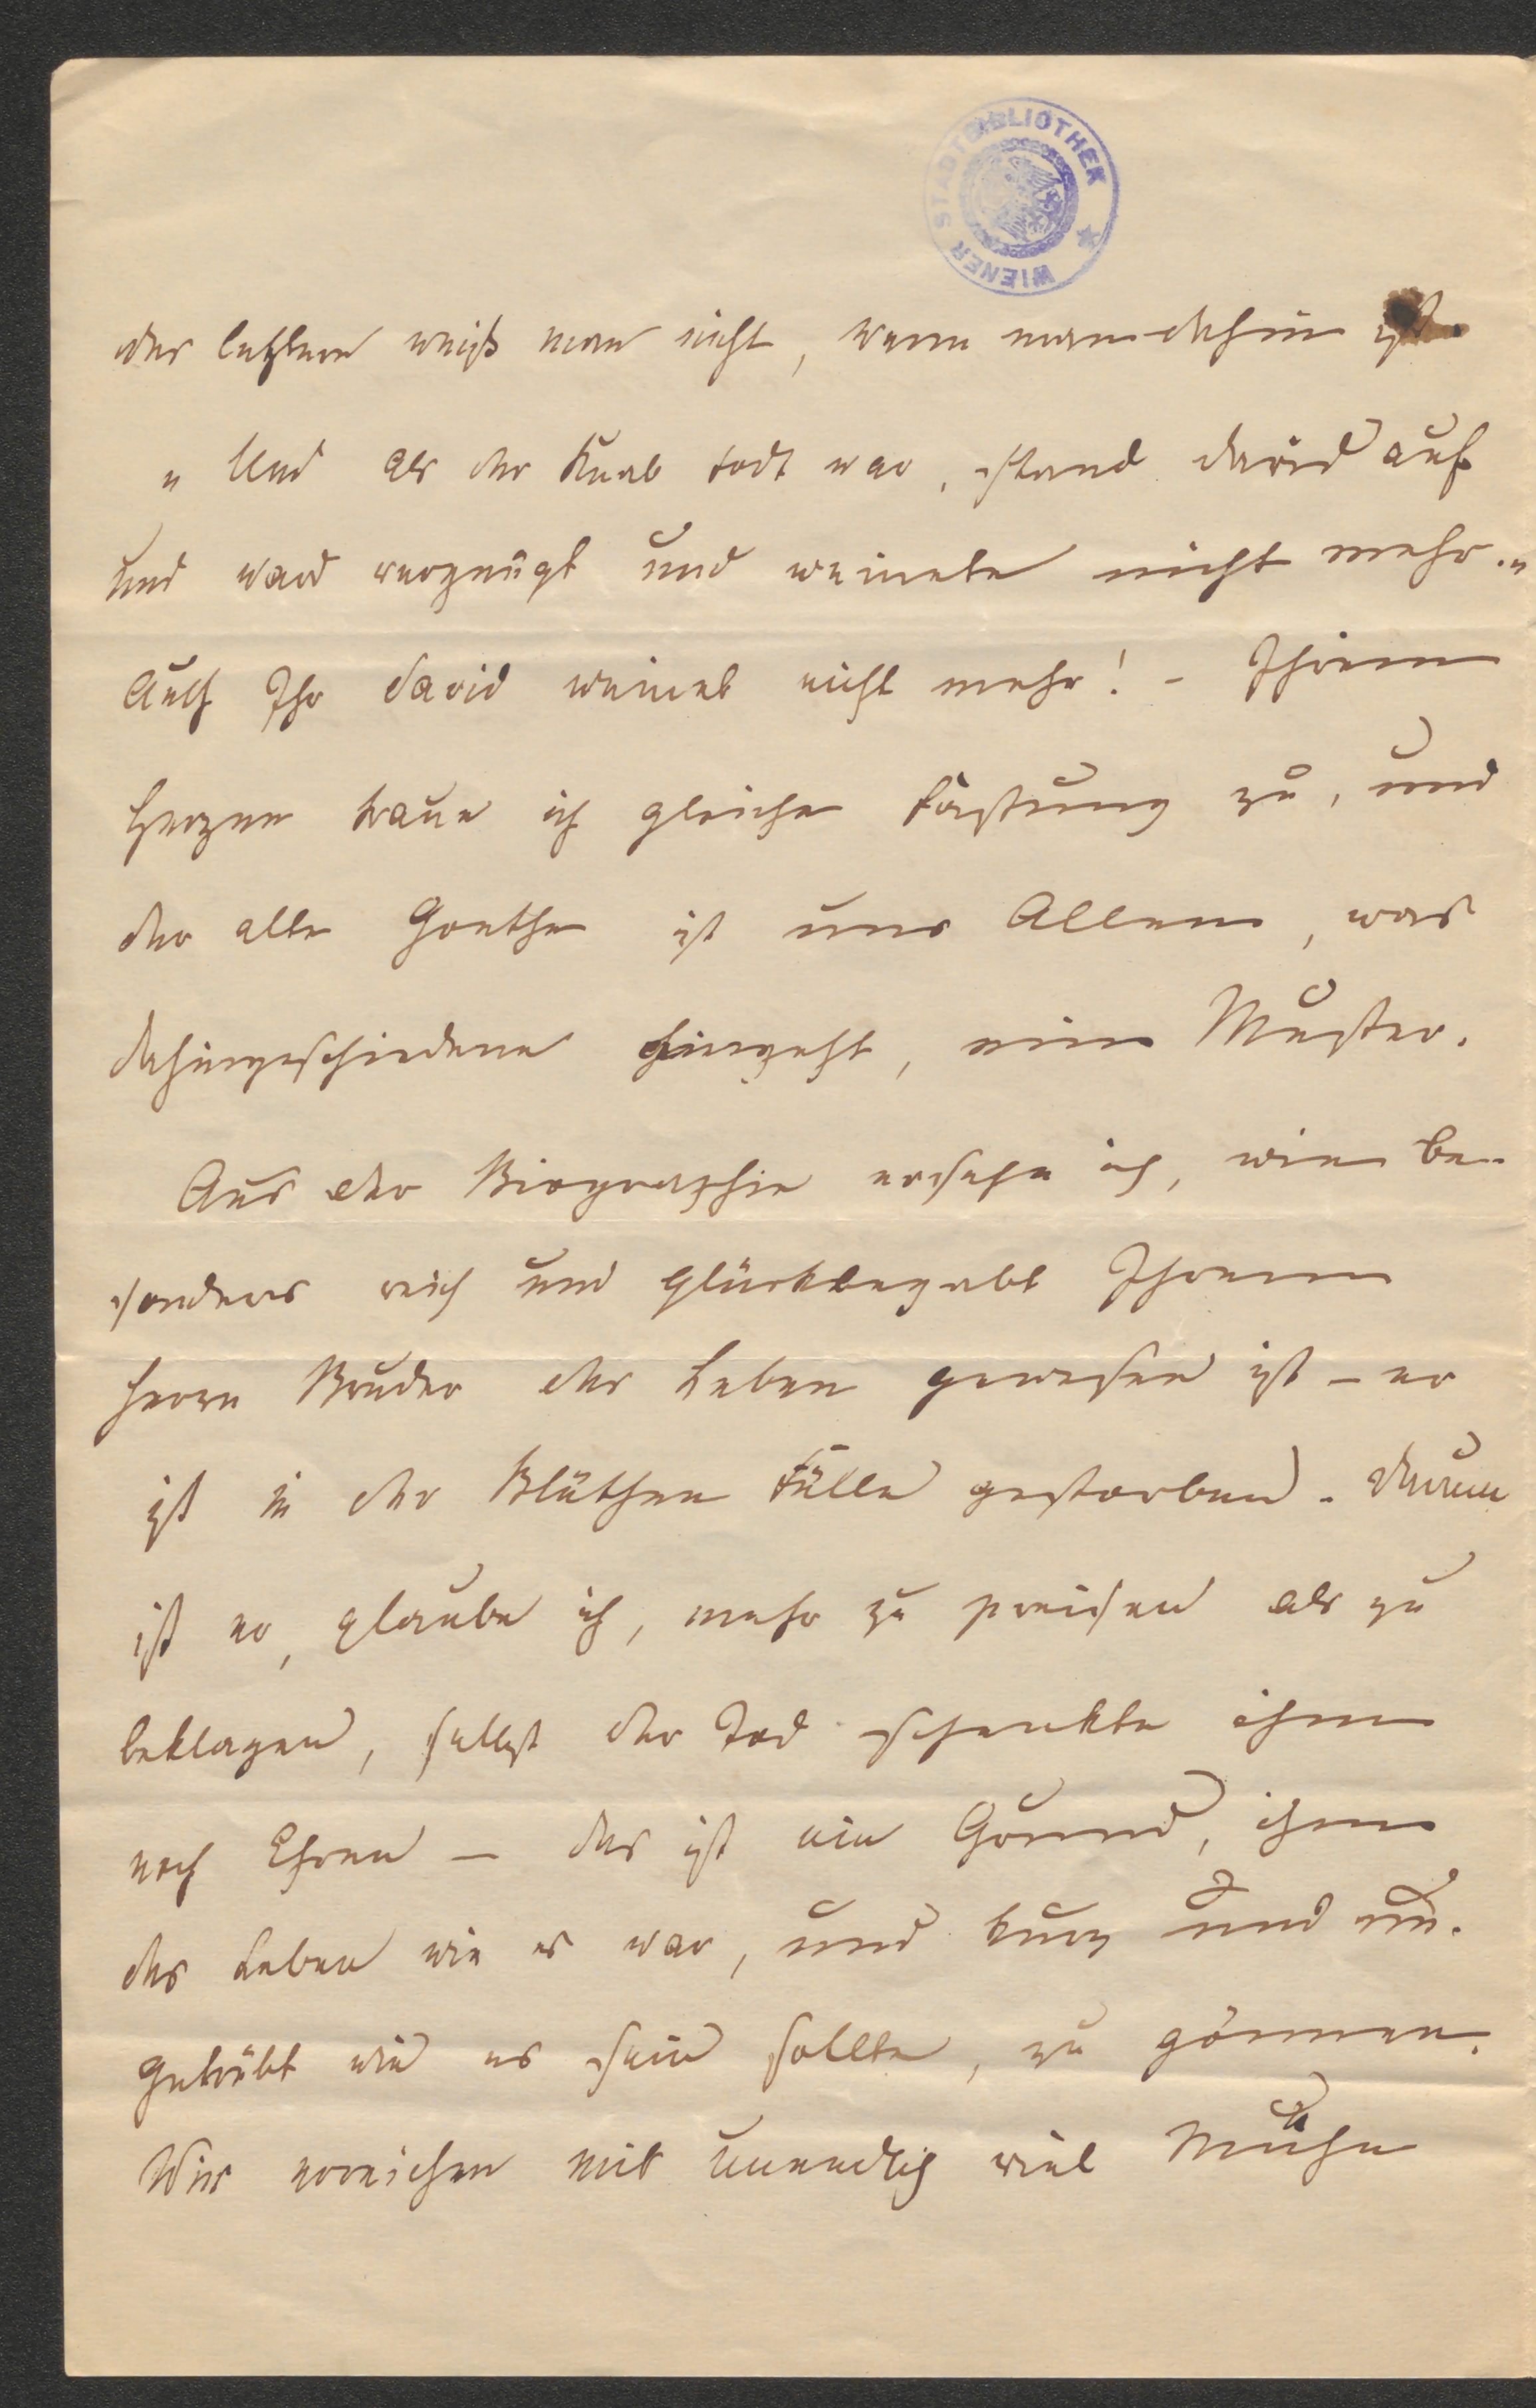 WIENER STADTBIBLIOTHEK
das letztere weiß man nicht, wenn man dahin ist.
„Und als der Knab todt war, stand David auf
und ward vergnügt und weinete nicht mehr.„
Auch Ihr David weinet nicht mehr! – Ihrem
Herzen traue ich gleiche Fassung zu, und
der alte Goethe ist uns Allen, was
dahingeschiedene hingeht, ein Muster.
Aus der Biographie ersehe ich, wie be-
sonders reich und glückbegabt Ihrem
Herrn Bruder das Leben gewesen ist – er
ist in der Blüthen Fülle gestorben. Darum
ist er, glaube ich, mehr zu preisen als zu
beklagen, selbst der Tod schenkte ihm
noch Ehren – das ist ein Grund, ihm
das Leben wie es war, und kurz und un-
getrübt wie es sein sollte, zu gönnen.
Wir erreichen mit unendlich viel Mühe